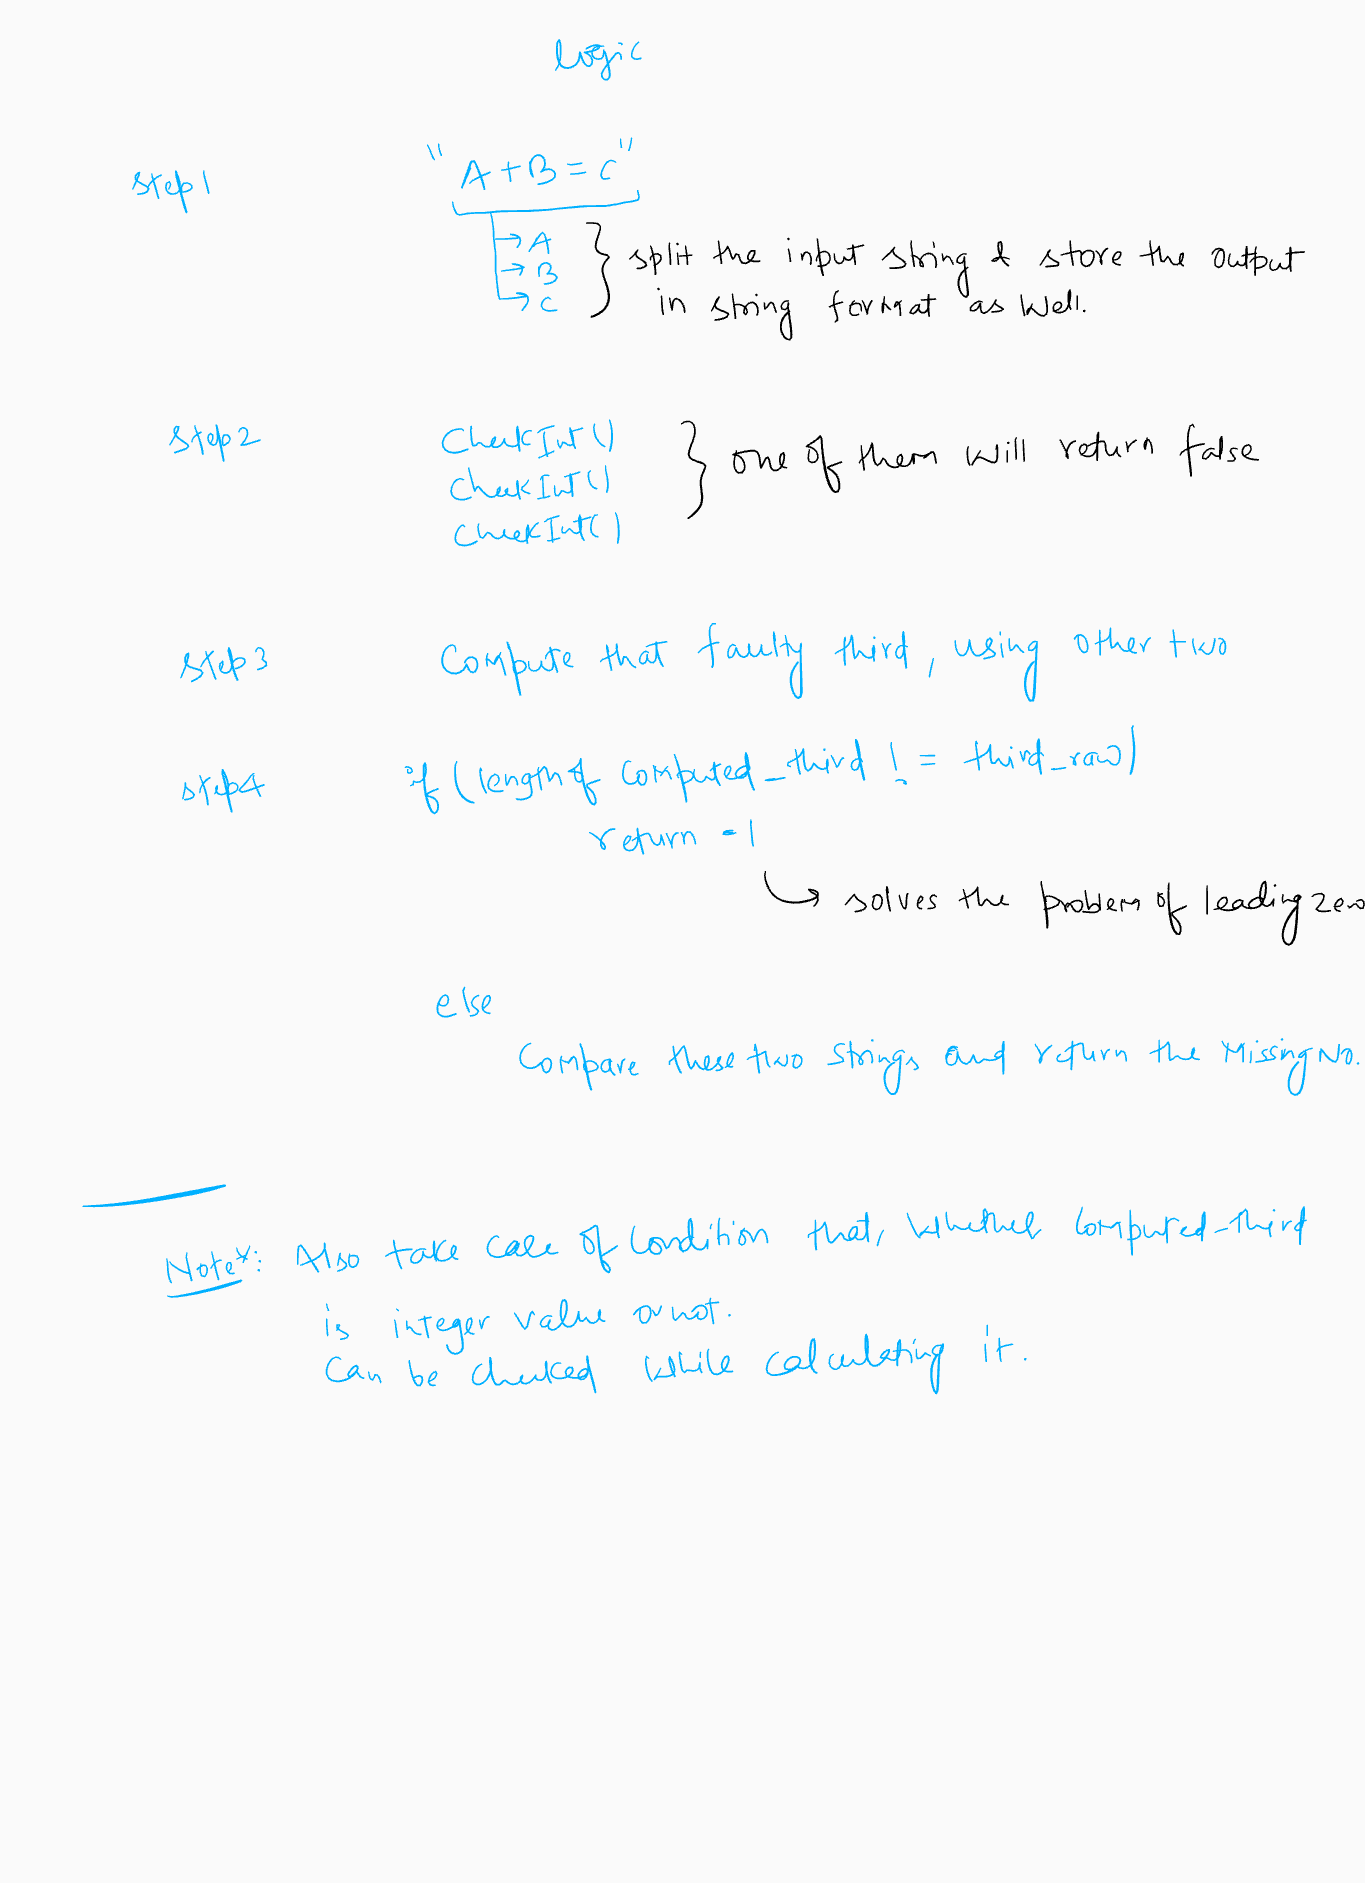 logic
Step 1
"A+B=C"
→ A
→ B
→ C
split the input string & store the output
in string format as well.
Step 2
CheckInt()
CheckInt()
CheckInt()
one of them will return false
Step 3
Compute that faulty third, using other two
Step 4
if (length of computed_third != third_raw)
return -1
↳ solves the problem of leading zero
else
Compare these two strings and return the Missing No.
Note*: Also take care of condition that, whether computed_third
is integer value or not.
Can be checked while calculating it.